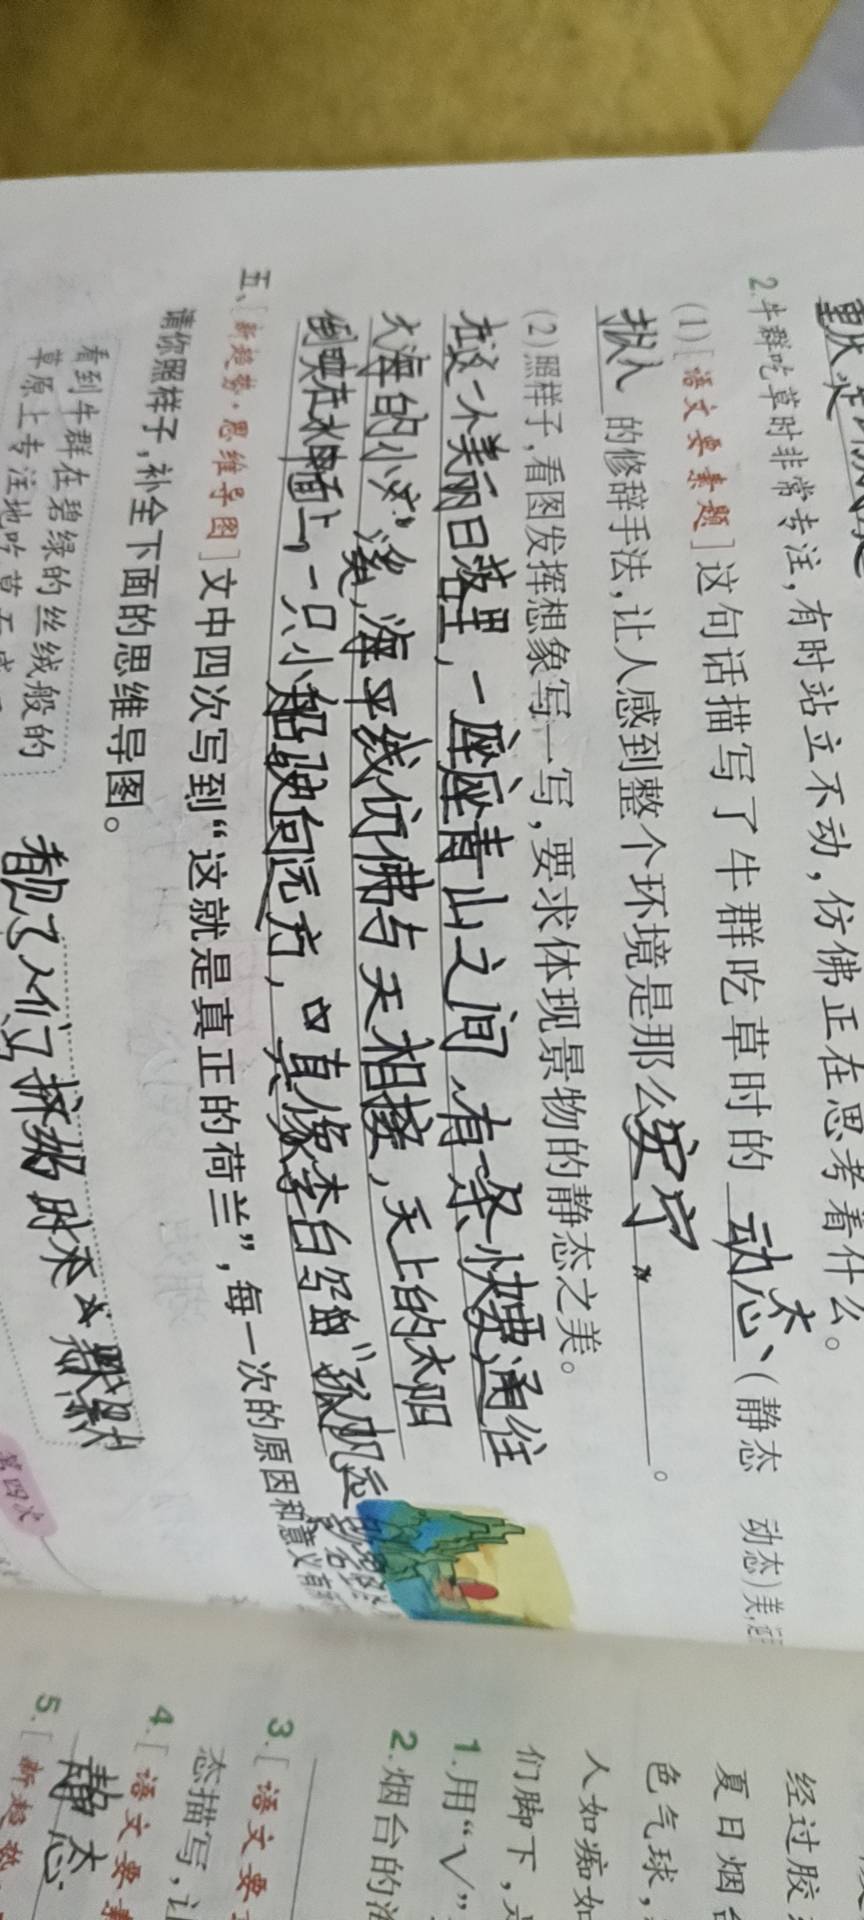 2.牛群吃草时非常专注,有时站立不动,仿佛正在思考着什么。
(1)[语文要素题]这句话描写了牛群吃草时的动态(静态 动态)美,
拟人的修辞手法,让人感到整个环境是那么安宁。
(2)照样子,看图发挥想象写一写,要求体现景物的静态之美。
在这一个美丽日落里,一座座青山之间,有一条快要通往
大海的小溪,海平线仿佛与天相接,天上的太阳
倒映在水面上,一只小船驶向远方,真像李白写的“孤帆远
五、[新趋势·思维导图]文中四次写到“这就是真正的荷兰”,每一次的原因和意义有
请你照样子,补全下面的思维导图。
看到牛群在碧绿的丝绒般的
草原上专注地吃草
人们挤奶时 默默
第四次
经过胶
夏日烟台
色气球,
人如痴如
们脚下,
1.用“√”
2.烟台的
3.[语文要
态描写,让
4.[语文要素
静态
5.[新趋势